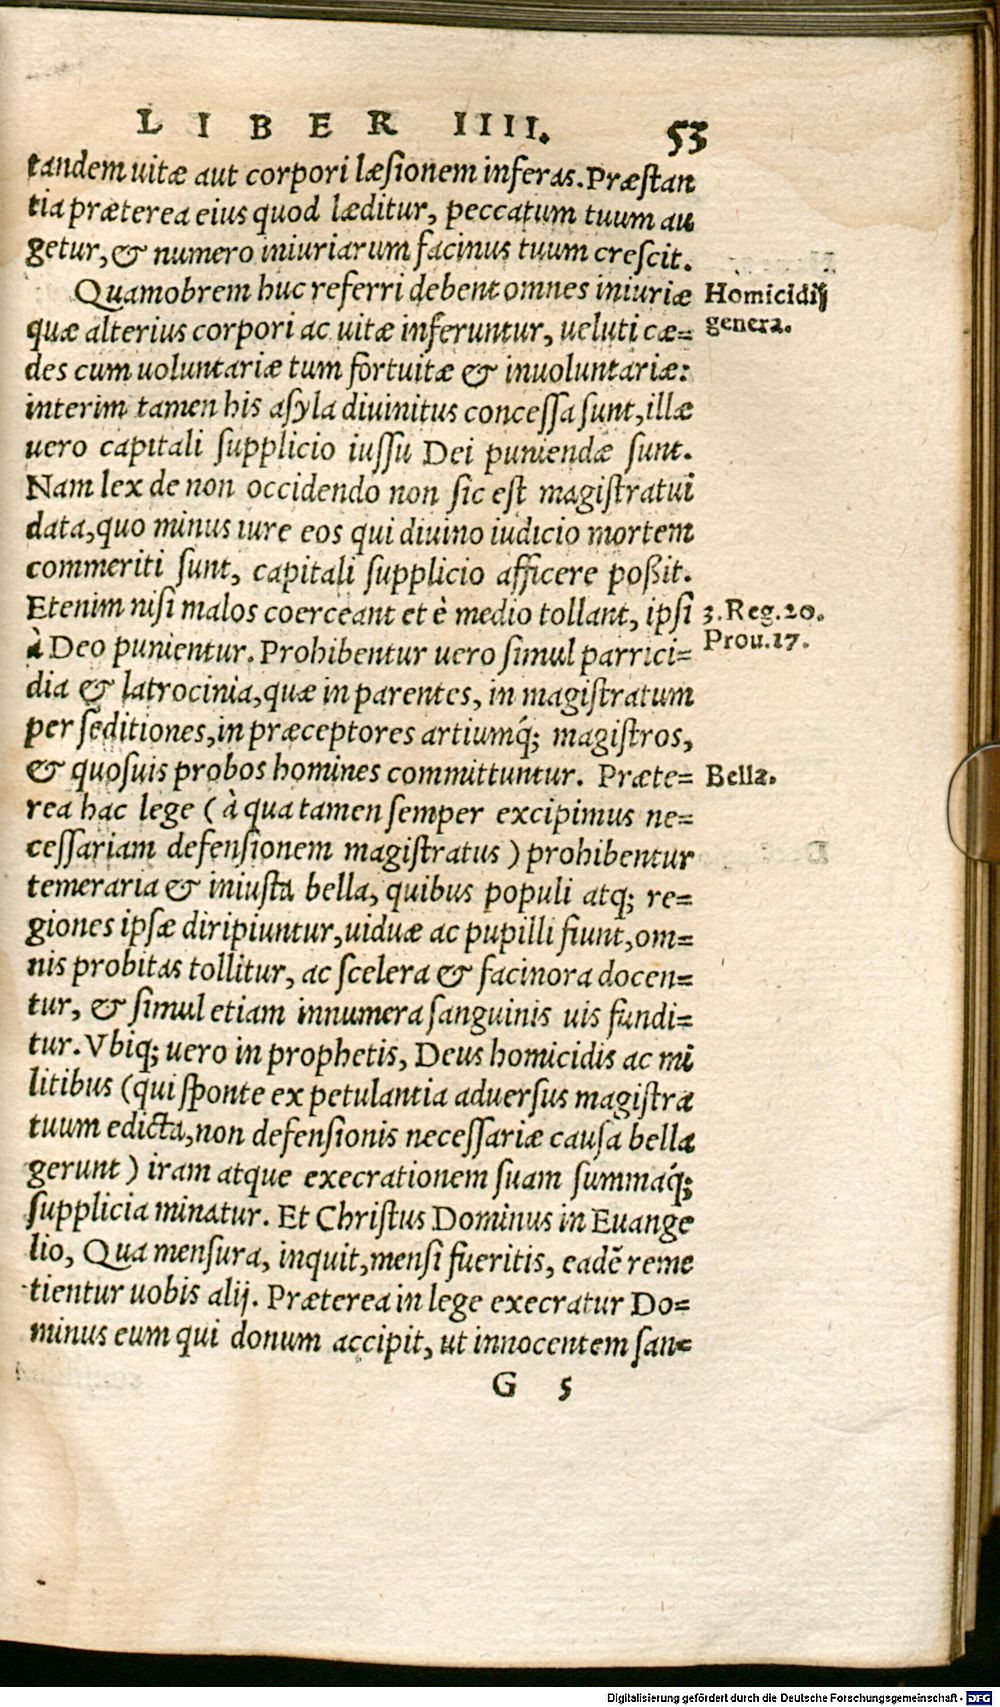 LIBER IIII. 53
tandem uitæ aut corpori læsionem inferas. Præstan
tia præterea eius quod læditur, peccatum tuum au
getur, & numero iniuriarum facinus tuum crescit.
Quamobrem huc referri debent omnes iniuriæ
Homicidij
quæ alterius corpori ac uitæ inferuntur, ueluti cæ=
genera.
des cum uoluntariæ tum fortuitæ & inuoluntariæ:
interim tamen his asyla diuinitus concessa sunt, illæ
uero capitali supplicio iussu Dei puniendæ sunt.
Nam lex de non occidendo non sic est magistratui
data, quo minus iure eos qui diuino iudicio mortem
commeriti sunt, capitali supplicio afficere poßit.
Etenim nisi malos coerceant et è medio tollant, ipsi
3. Reg. 20.
à Deo punientur. Prohibentur uero simul parrici=
Prou. 17.
dia & latrocinia, quæ in parentes, in magistratum
per seditiones, in præceptores artiumq́; magistros,
& quosuis probos homines committuntur. Præte=
Bella.
rea hac lege (à qua tamen semper excipimus ne=
cessariam defensionem magistratus) prohibentur
temeraria & iniusta bella, quibus populi atq; re=
giones ipsæ diripiuntur, uiduæ ac pupilli fiunt, om=
nis probitas tollitur, ac scelera & facinora docen=
tur, & simul etiam innumera sanguinis uis fundi=
tur. Vbiq; uero in prophetis, Deus homicidis ac mi
litibus (qui sponte ex petulantia aduersus magistra
tuum edicta, non defensionis necessariæ causa bella
gerunt) iram atque execrationem suam summaq́;
supplicia minatur. Et Christus Dominus in Euange
lio, Qua mensura, inquit, mensi fueritis, eadē reme
tientur uobis alij. Præterea in lege execratur Do=
minus eum qui donum accipit, ut innocentem san=
G 5
Digitalisierung gefördert durch die Deutsche Forschungsgemeinschaft - DFG